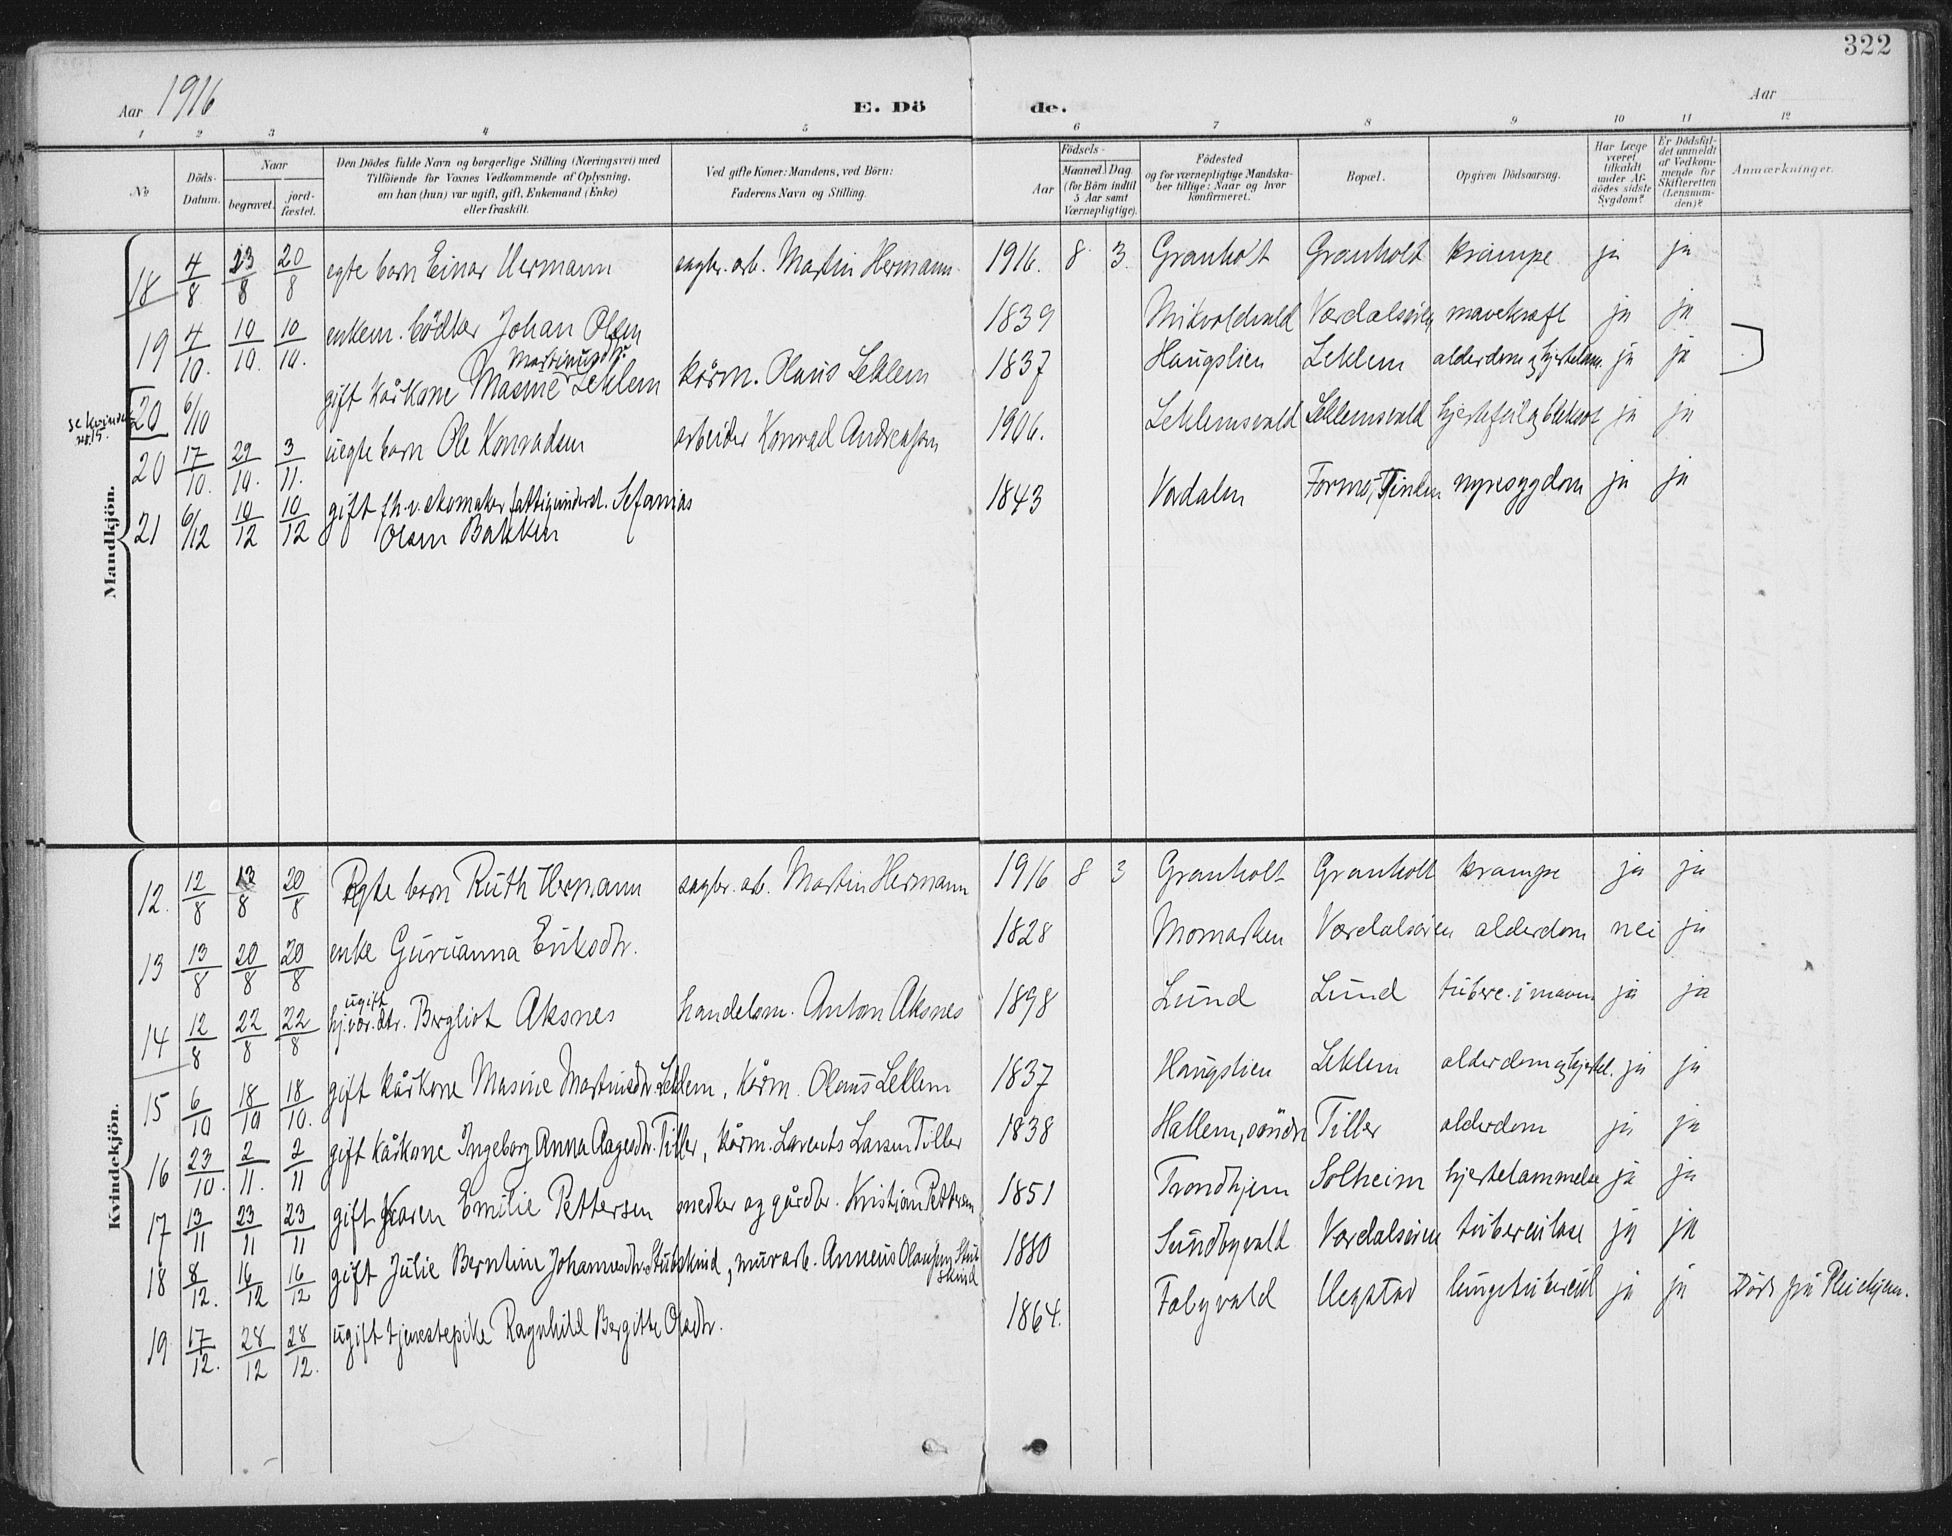 322
Aar 1916
E. Dö de.
Aar
1 2 3 4 5 6 7 8 9 10 11 12
No
Döds-Datum.
Naar
begravet.
jord-fæstet.
Den Dödes fulde Navn og borgerlige Stilling (Næringsvei) med
Tilföiende for Voxnes Vedkommende af Oplysning,
om han (hun) var ugift, gift, Enkemand (Enke)
eller fraskilt.
Ved gifte Koner: Mandens, ved Börn:
Faderens Navn og Stilling.
Födsels-
Aar
Maaned. Dag
(for Börn indtil
5 Aar samt
Værnepligtige).
Födested
og for værnepligtige Mandska-
ber tillige: Naar og hvor
konfirmeret.
Bopæl.
Opgiven Dödsaarsag.
Har Læge
været
tilkaldt
under Af-
dödes sidste
Sygdom?
Er Dödsfal-
det anmeldt
af Vedkom-
mende for
Skifteretten
(Lensman-
den)?
Anmærkninger.
Mandkjön.
18 4/8 23/8 20/8 egte barn Einar Hermann sagbr. arb. Martin Hermann 1916. 8 3. Granholt Granholt krampe ja ja
19 4/10. 10/10. 10/10. enkem. bödker Johan Olsen 1839 Mikvoldvald Værdalsöien mavekræft ja ja
se kvinder nr. 15.
20 6/10 gift kårkone Masine Martinusdtr. Leklem kårm. Olaus Leklem 1837 Haugslien Leklem alderdom og hjertelam. ja ja
20 17/10. 29/10. 3/11. uegte barn Ole Konradsen arbeider Konrad Andreassen 1906. Leklemsvald Leklemsvald hjertefeil og bleksot ja ja
21 6/12 10/12 10/12 gift fh. v. skomaker fattigunderst. Sefanias
Olsen Bakken 1843 Værdalen Formo, nyresygdom ja ja
Kvindekjön.
12. 12/8 13/8 20/8 Egte barn Ruth Hermann sagbr. arb. Martin Hermann 1916 8 3 Granholt Granholt krampe ja ja
13 13/8 20/8 20/8 enke Guruanna Eriksdtr. 1828 Momarken Værdalsöien alderdom nei ja
14 12/8 22/8 22/8 ugift hjvær. dtr. Bergliot Aksnes handelsm. Anton Aksnes 1898 Lund Lund tuberc. i maven ja ja
15 6/10 18/10 18/10. gift kårkone Masine Martinsdtr. Leklem, kårm. Olaus Leklem 1837 Haugslien Leklem alderdom og hjertel. ja ja
16 23/10. 2/11. 2/11 gift kårkone Ingeborg Anna Aagesdtr. Tiller, kårm. Lorents Larsen Tiller 1838 Hallem, söndre Tiller alderdom ja ja
17 13/11 23/11 23/11 gift Karen Emilie Pettersen snedker og gårdbr. Kristian Pettersen 1851 Trondhjem Solheim hjertelammelse ja ja
18 8/12. 16/12 16/12 gift Julie Berntine Johannesdtr. Stubskind, murarb. Anneus Olausen Stubskind 1880 Sundbyvald Værdalsöien tuberculose ja ja
19 17/12. 28/12 28/12. ugift tjenestepike Ragnhild Bergitte Olsdtr. 1864. Fabyvald lungetubercul ja ja Död på Pleiehjem.